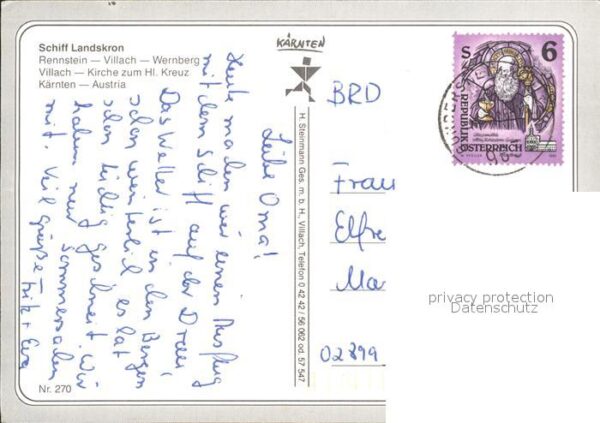 Schiff Landskron
Rennstein — Villach — Wernberg
Villach — Kirche zum Hl. Kreuz
Kärnten — Austria
KÄRNTEN
Liebe Oma!
Heute machen wir einen Ausflug
mit dem Schiff auf der Drau,
Das Wetter ist in den Bergen
schon winterlich es hat
schon tüchtig geschneit. Wir
haben nur Sommersachen
mit. Viel Grüße Fritz + Eva
Nr. 270
H. Steinmann Ges. m. b. H., Villach, Telefon 0 42 42 / 56 062 od. 57 547
S 6
REPUBLIK
ÖSTERREICH
BRD
Frau
Elfre
Ma
02899
privacy protection
Datenschutz